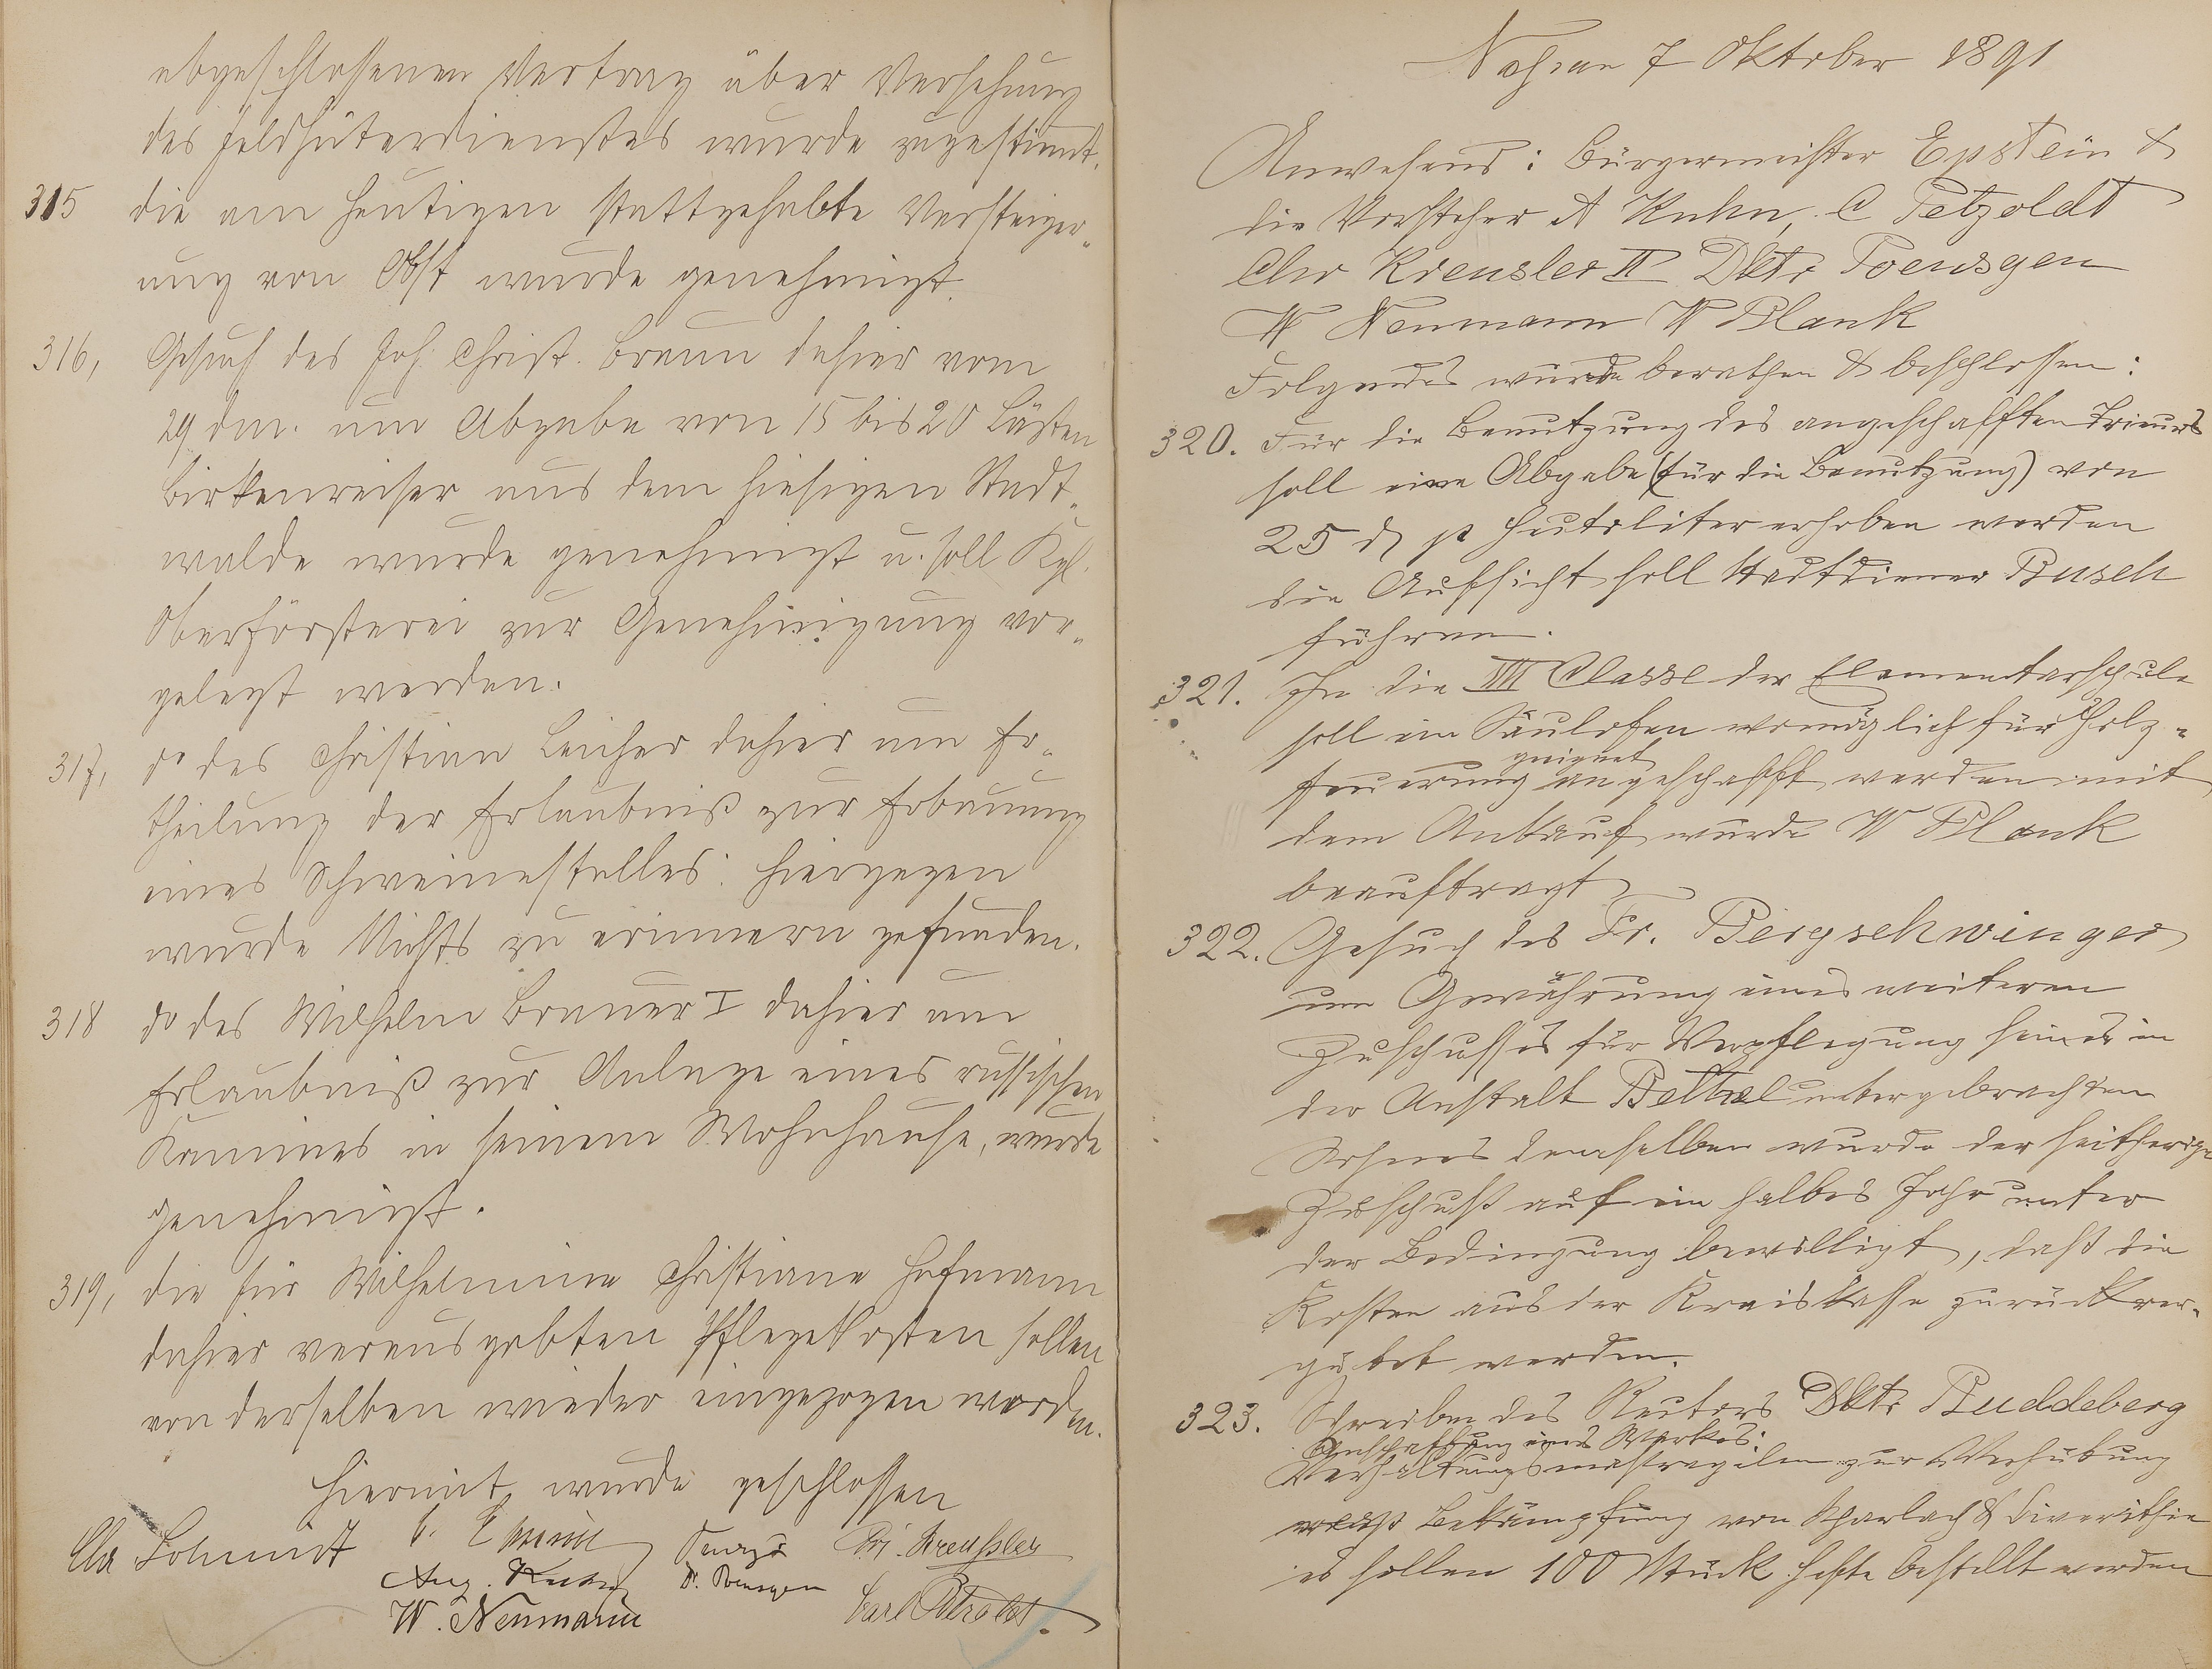 abgeschlossenen Vertrag über Versehung
des Feldhüterdienstes wurde zugestimmt.
315 die am heutigen stattgehabte Versteiger-
ung von Obst wurde genehmigt.
316, Gesuch des Joh. Christ. Braun dahier vom
29 dm. um Abgabe von 15 bis 20 Lasten
Birkenreiser aus dem hiesigen Stadt-
walde wurde genehmigt u. soll Kgl.
Oberförsterei zur Genehmigung vor-
gelegt werden.
317, do des Christian Leicher dahier um Er-
theilung der Erlaubniß zur Erbauung
eines Schweinestalles: hiergegen
wurde Nichts zu erinnern gefunden.
318 do des Wilhelm Brauer I dahier um
Erlaubniß zur Anlage eines russischen
Kamines in seinem Wohnhause, wurde
genehmigt.
319, die für Wilhelmine Christiane Hofmann
dahier verausgabten Pflegekosten sollen
von derselben wieder eingezogen werden.
Hiermit wurde geschlossen
Chr Schmidt Chr. Kreußler
Aug. Kuhn Dr. Poensgen
W. Neumann Carl Petzoldt
7 Oktober 1891
Anwesend: Bürgermeister Epstein &
die Vorsteher A Kuhn, C Petzoldt
Chr Kreusler II Dktr Poensgen
W Neumann W Blank
Folgendes wurde berathen & beschlossen:
320. Für die Benutzung des angeschafften Trieurs
soll eine Abgabe (für die Benutzung) von
25 d p Hectoliter erhoben werden
die Aufsicht soll Stadtdiener Busch
führen.
321. In die III Classe der Elementarschule
soll ein Säulofen womöglich für Holz-
geeignet
feuerung angeschafft werden mit
dem Ankauf wurde W Blank
beauftragt
322. Gesuch des Fr. Bergschwinger
um Gewährung eines weiteren
Zuschusses für Verpflegung seines in
der Anstalt Bethel untergebrachten
Sohnes demselben wurde der seitherige
Zuschuß auf ein halbes Jahr unter
der Bedingung bewilligt, daß die
Kosten aus der Kreiskasse zurückver-
gütet werden.
323. Schreiben des Rectors Dktr Buddeberg
Anschaffung eines Werkes:
Verhaltungsmaßregeln zur Verhütung
Bekämpfung von Scharlach & Diverithie
es sollen 100 Stück Hefte bestellt werden